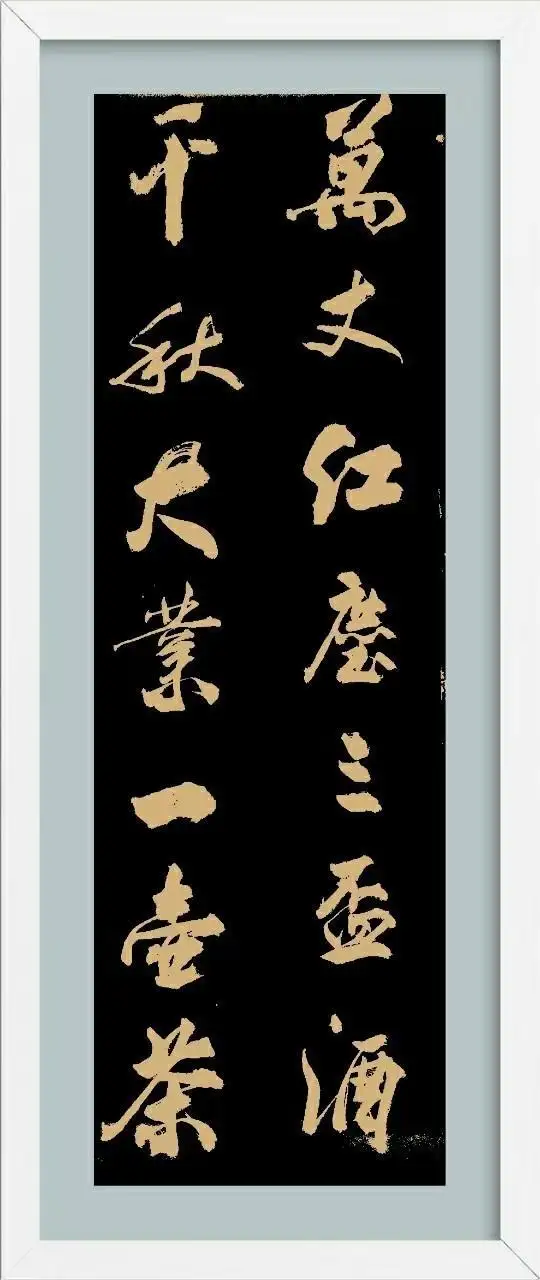 萬丈紅塵三盃酒
千秋大業一壺茶